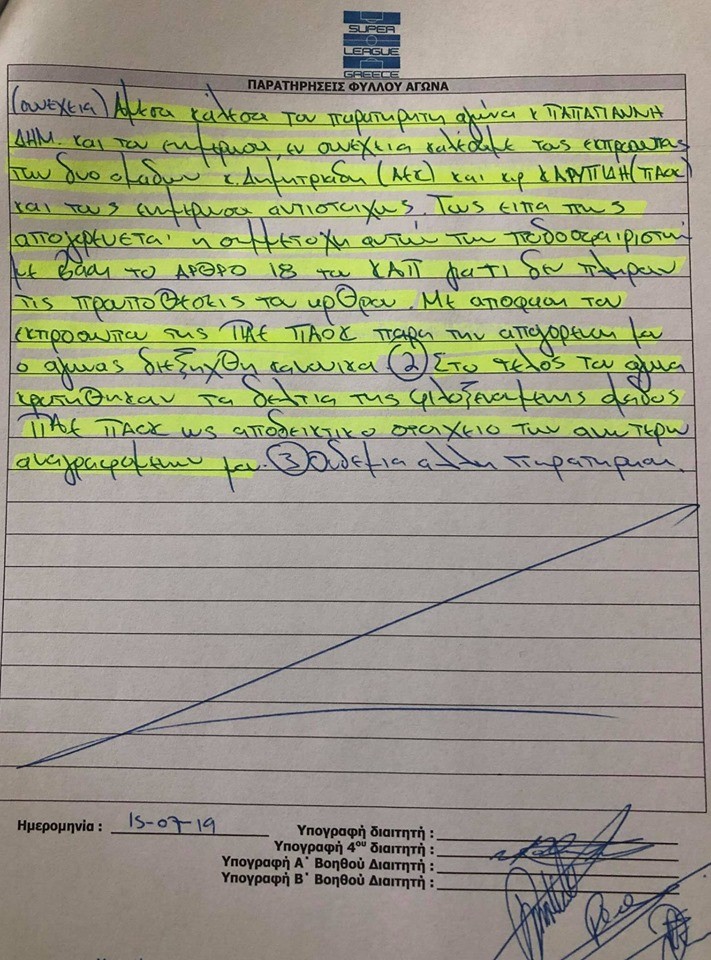 SUPER
LEAGUE
GREECE
ΠΑΡΑΤΗΡΗΣΕΙΣ ΦΥΛΛΟΥ ΑΓΩΝΑ
(συνεχεια) Αμεσα καλεσα τον παρατηρητη αγωνα κ ΠΑΠΑΓΙΑΝΝΗ
ΔΗΜ. και τον ενημερωσα, εν συνεχεια καλεσαμε τους εκπροσωπους
των δυο ομαδων κ. Δημητριαδη (ΑΕΚ) και κρ ΚΑΡΥΠΙΔΗ (ΠΑΟΚ)
και τους ενημερωσα αντιστοιχως. Τους ειπα πως
απαγορευεται η συμμετοχη αυτων των ποδοσφαιριστων
με βαση το ΑΡΘΡΟ 18 του ΚΑΠ γιατι δεν πληρουν
τις προυποθεσεις του αρθρου. Με αποφαση του
εκπροσωπου της ΠΑΕ ΠΑΟΚ παρα την απαγορευση μου
ο αγωνας διεξηχθη κανονικα. 2 Στο τελος του αγωνα
κρατηθηκαν τα δελτια της φιλοξενουμενης ομαδος
ΠΑΕ ΠΑΟΚ ως αποδεικτικο στοιχειο των ανωτερω
αναγραφομενων μου. 3 Ουδεμια αλλη παρατηρηση.
Ημερομηνία : 15-07-19
Υπογραφή διαιτητή :
Υπογραφή 4ου διαιτητή :
Υπογραφή Α΄ Βοηθού Διαιτητή :
Υπογραφή Β΄ Βοηθού Διαιτητή :